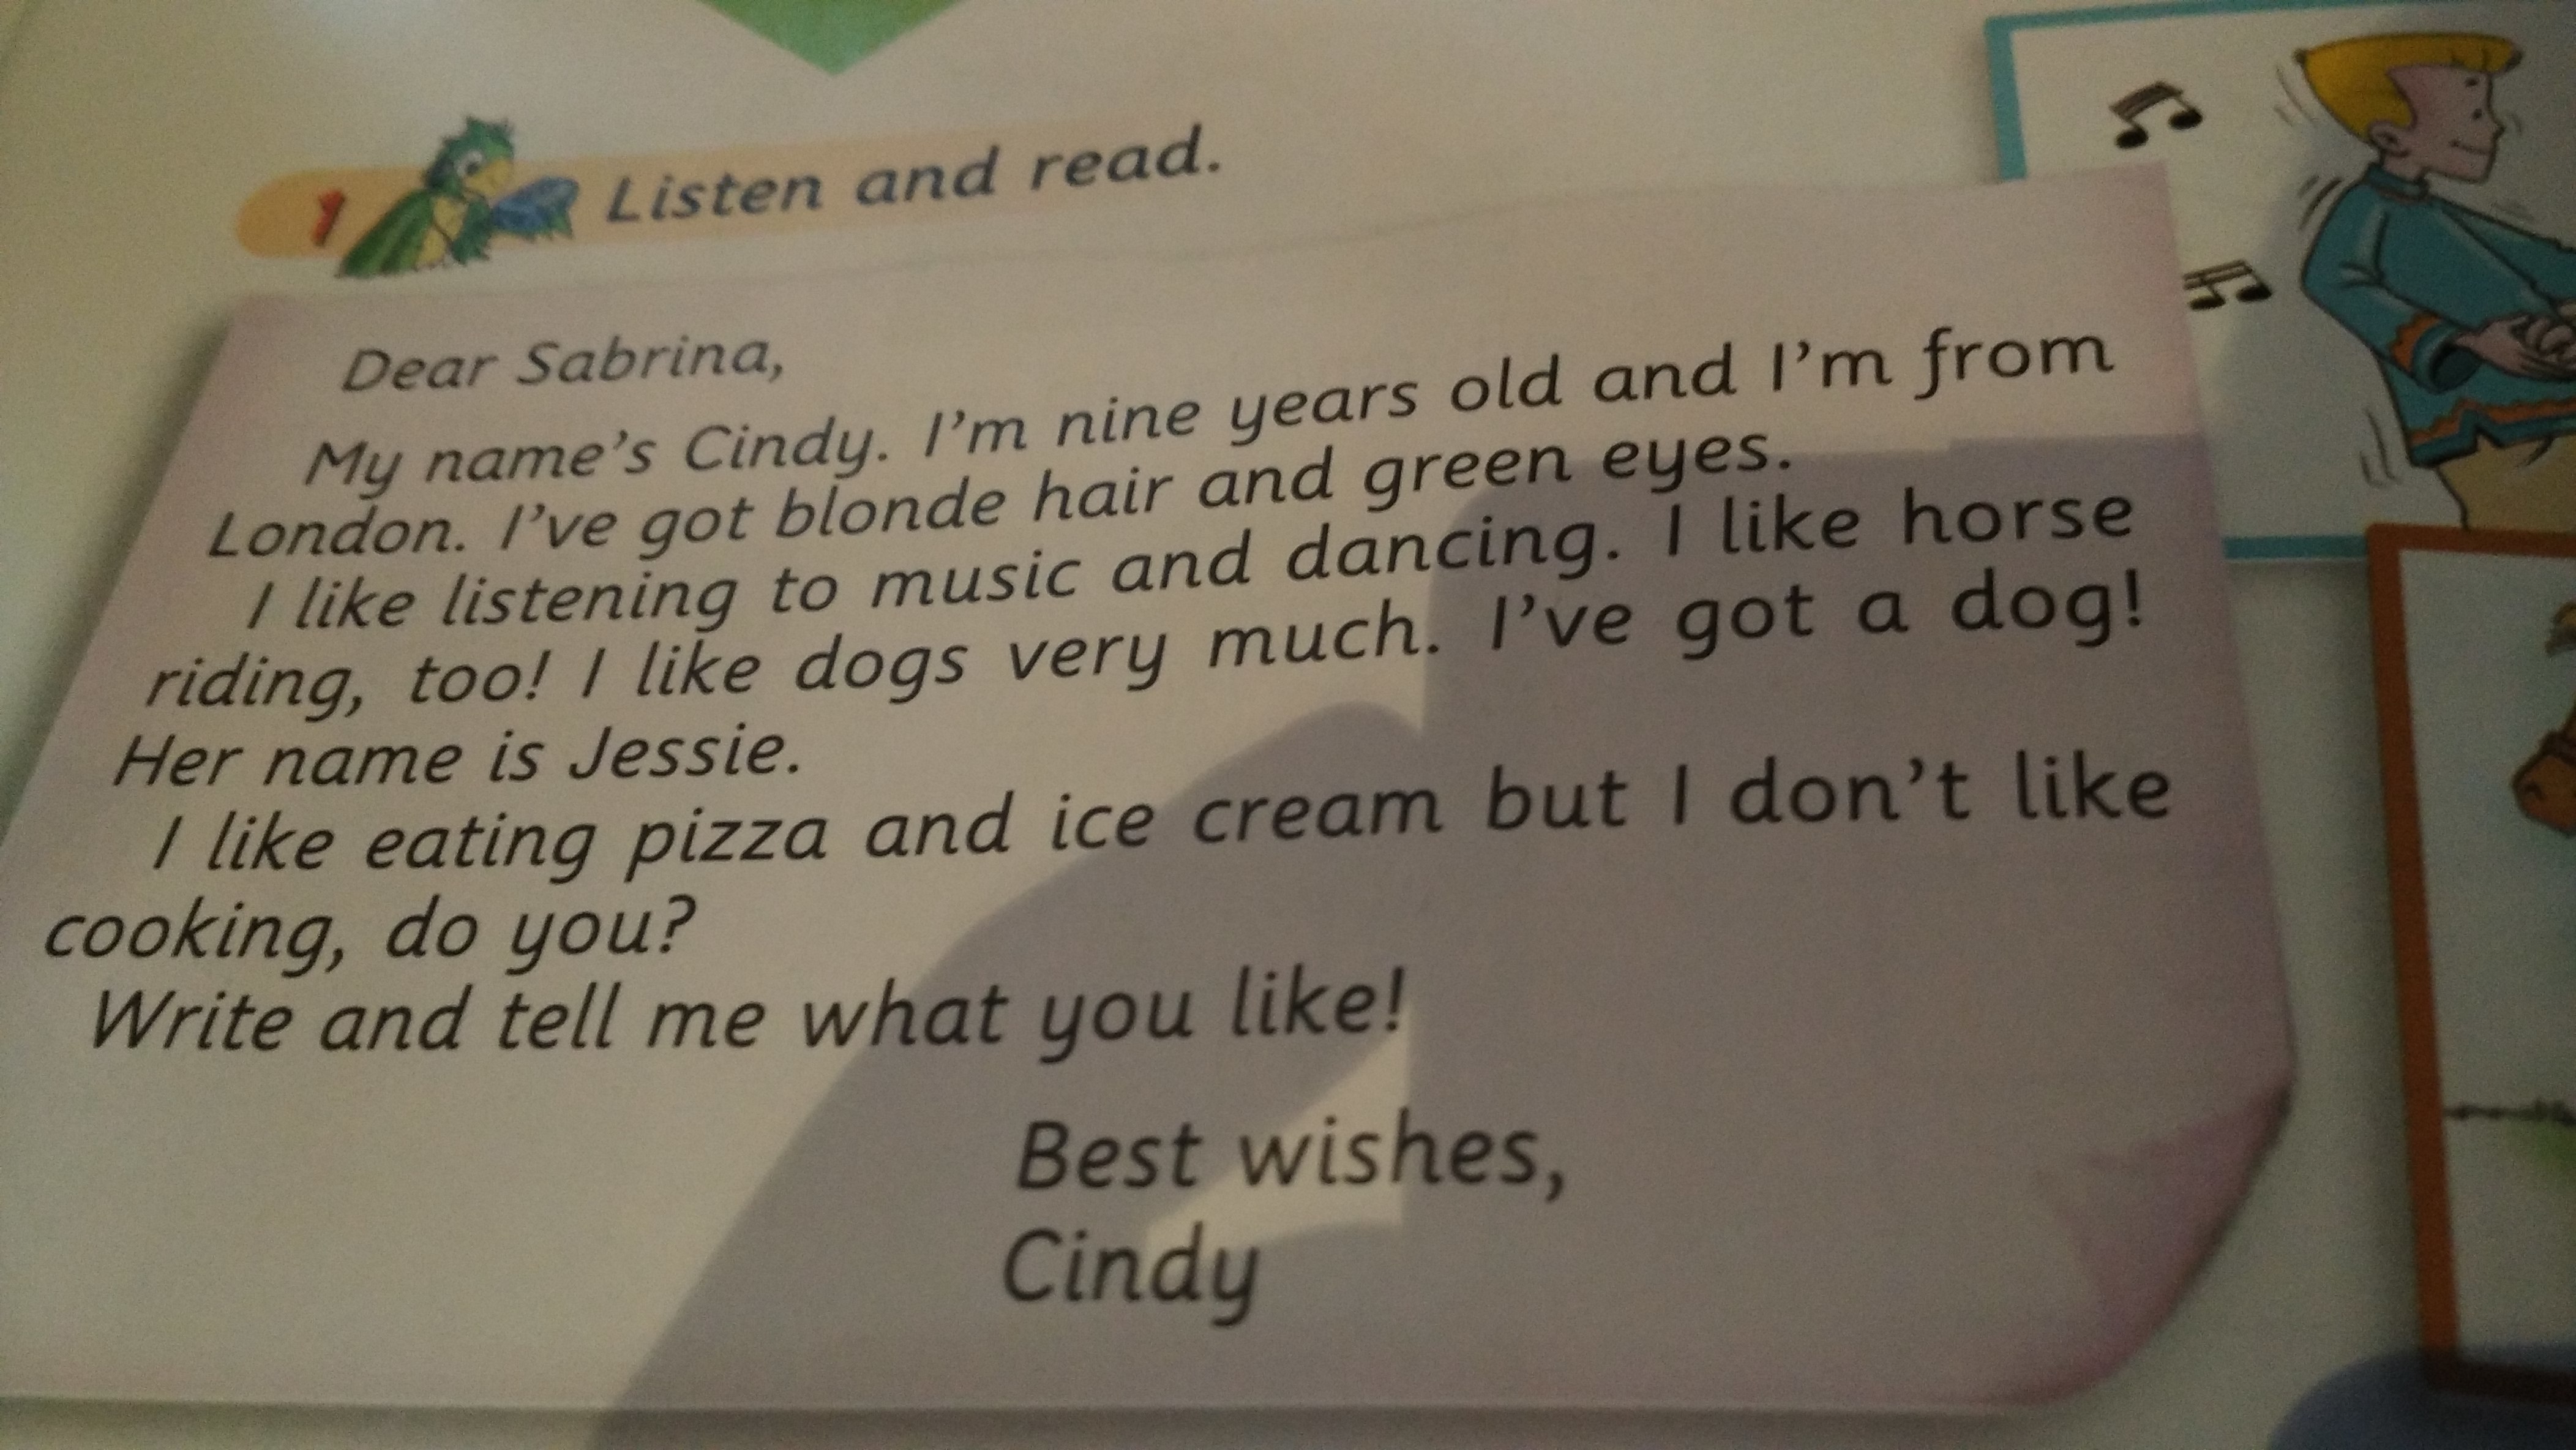 1 Listen and read.
Dear Sabrina,
My name's Cindy. I'm nine years old and I'm from
London. I've got blonde hair and green eyes.
I like listening to music and dancing. I like horse
riding, too! I like dogs very much. I've got a dog!
Her name is Jessie.
I like eating pizza and ice cream but I don't like
cooking, do you?
Write and tell me what you like!
Best wishes,
Cindy